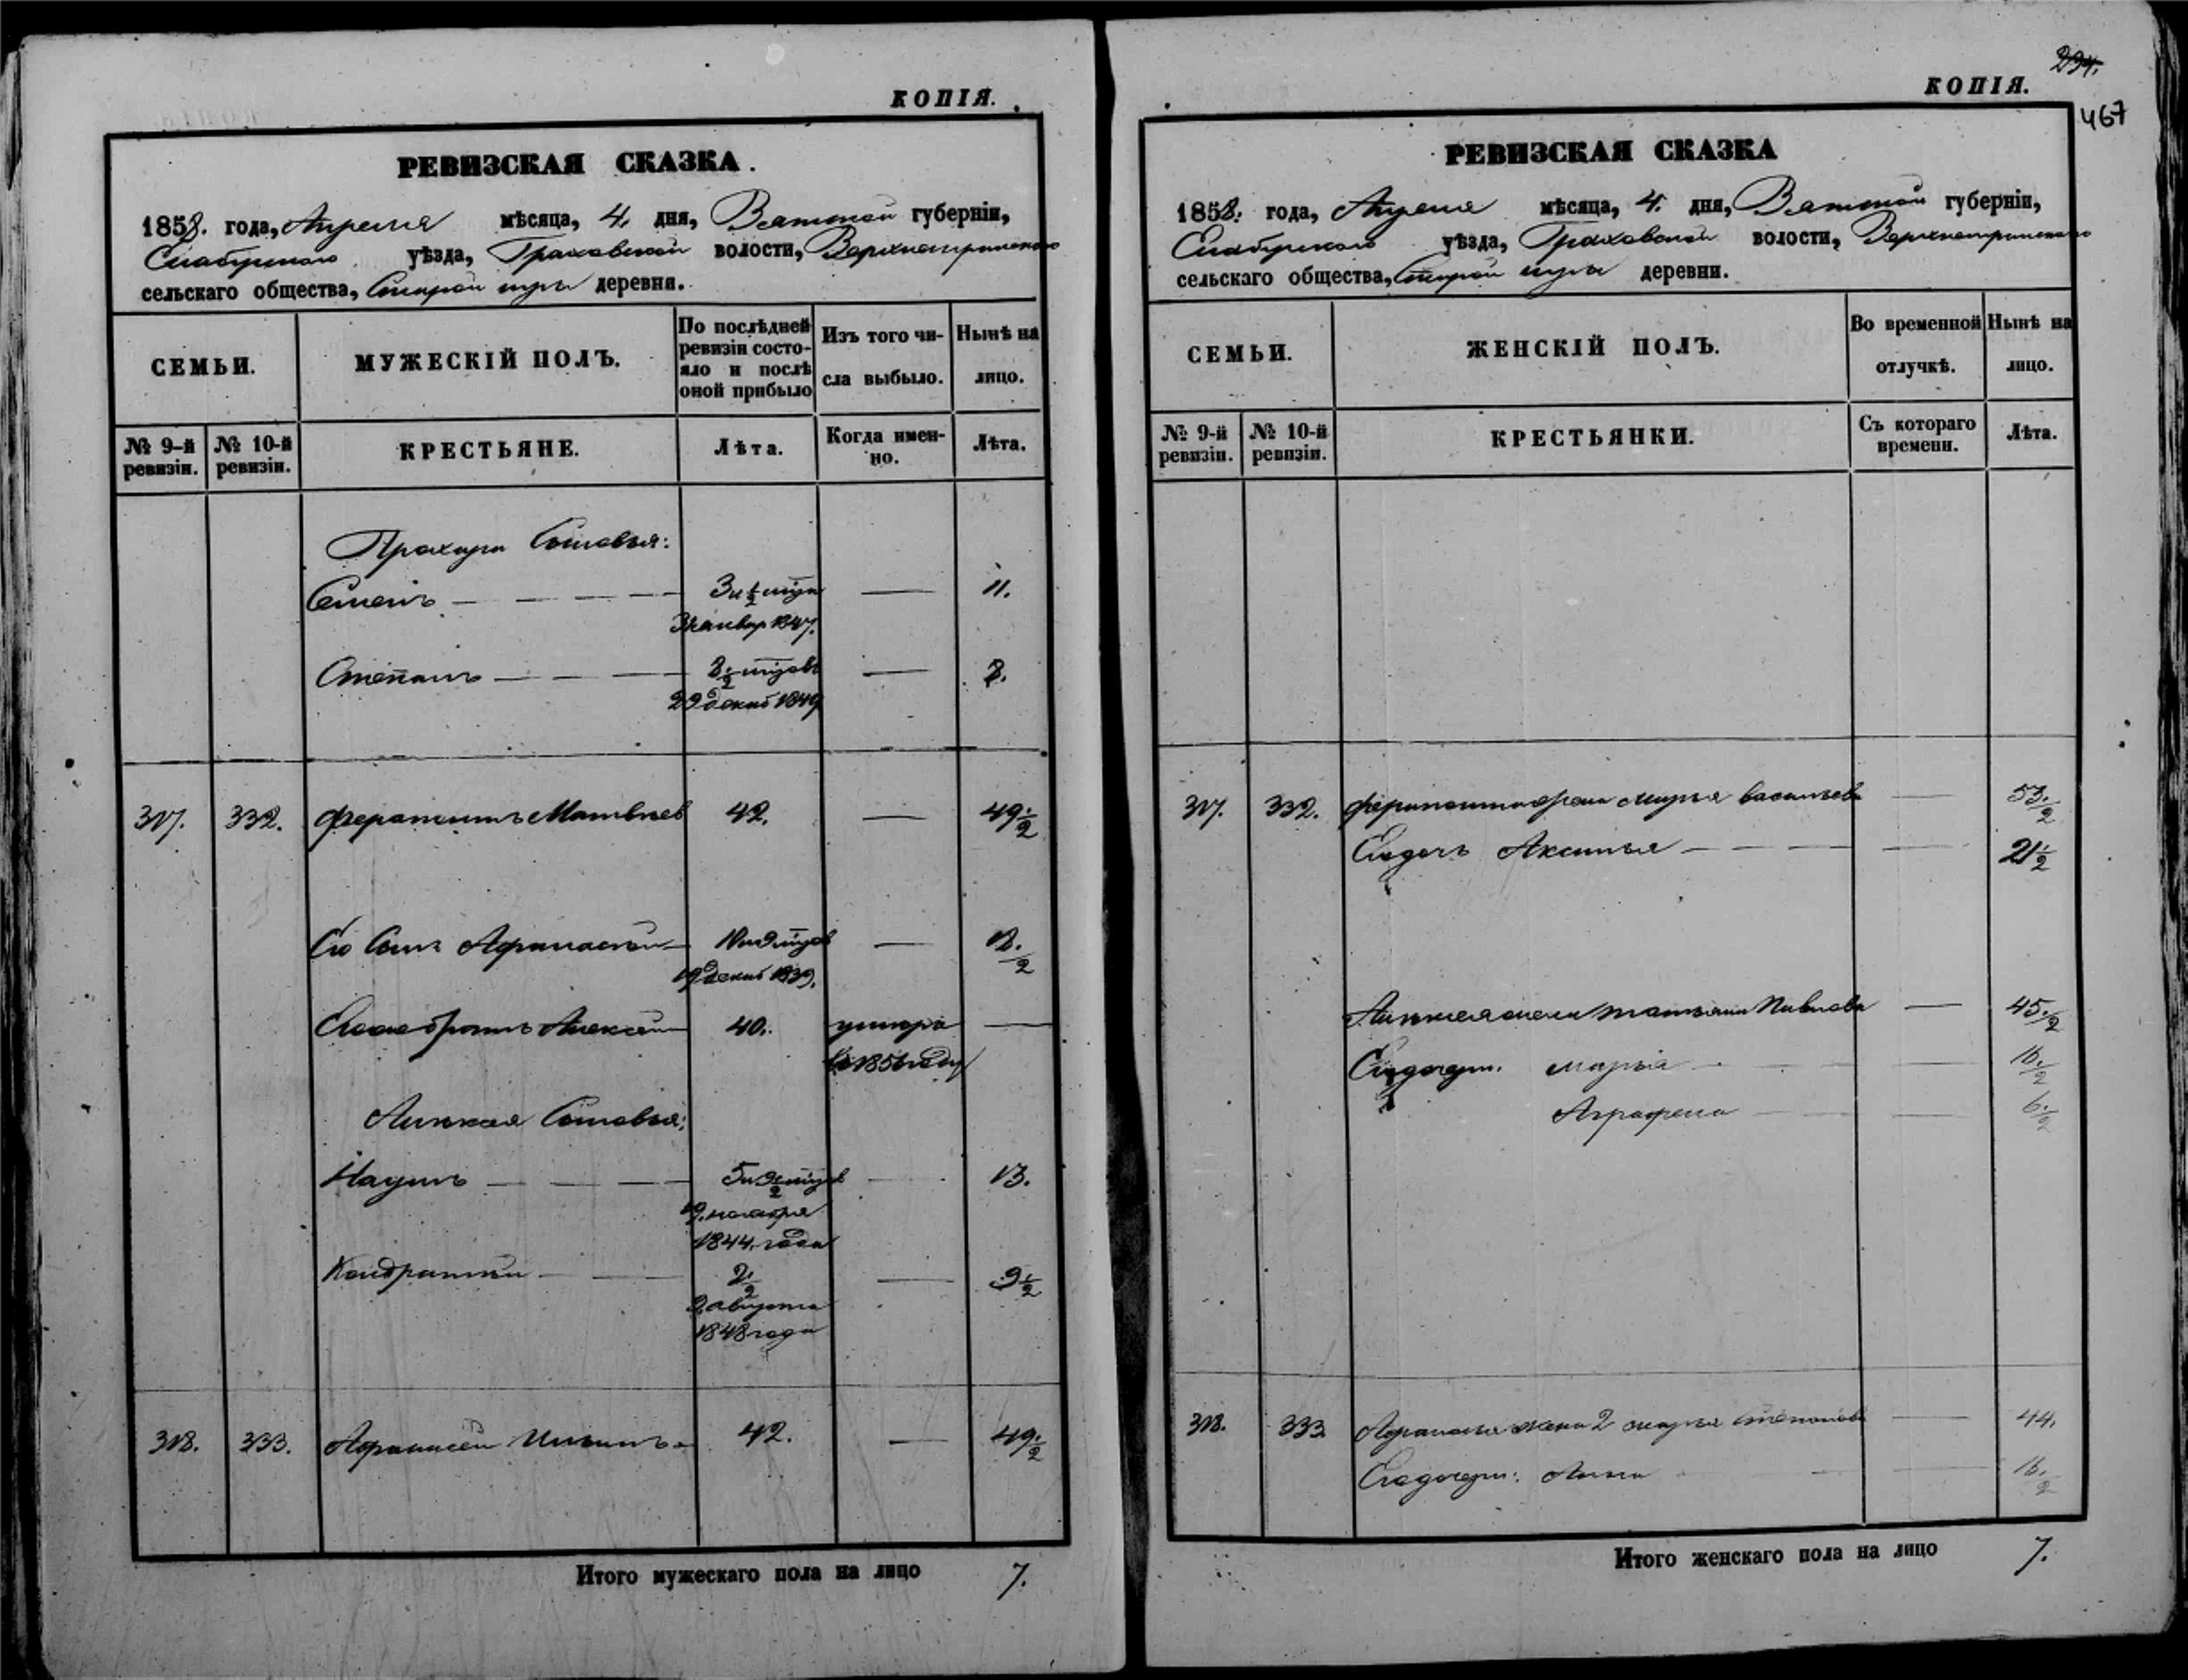 КОПІЯ.
РЕВИЗСКАЯ СКАЗКА.
1858. года, Апреля мѣсяца, 4. дня, Вятской губерніи,
Елабужскаго уѣзда, Граховской волости,
сельскаго общества, Старой деревни.
СЕМЬИ.
МУЖЕСКІЙ ПОЛЪ.
По послѣдней ревизіи состояло и послѣ оной прибыло
Изъ того числа выбыло.
Нынѣ на лицо.
№ 9-й ревизіи.
№ 10-й ревизіи.
КРЕСТЬЯНЕ.
Лѣта.
Когда именно.
Лѣта.
Прохора Сыновья:
Семенъ — — — — — 11.
Степанъ — — — — 8.
29 декаб 1849
317. 332. Ферапонтъ Матвѣев 42. — 49 1/2
Его Сынъ Афанасий — — 18. 1/2
19 декаб 1839.
братъ Алексей 40. умеръ —
в 1856 году
Алексея Сыновья:
Наумъ — — — — 13.
9. ноября
1844. года
Кондратий — — 2. 1/2 — 9 1/2
2 августа
1848 года
318. 333. Афанасей 42. — 49. 1/2
Итого мужескаго пола на лицо 7.
234.
КОПІЯ.
467
РЕВИЗСКАЯ СКАЗКА
1858. года, Апреля мѣсяца, 4. дня, Вятской губерніи,
Елабужскаго уѣзда, Граховской волости,
сельскаго общества, Старой деревни.
СЕМЬИ.
ЖЕНСКІЙ ПОЛЪ.
Во временной отлучкѣ.
Нынѣ на лицо.
№ 9-й ревизіи.
№ 10-й ревизіи.
КРЕСТЬЯНКИ.
Съ котораго времени.
Лѣта.
317. 332. Ферапонта жена Марья васильева — 53. 1/2
Ево дочь Аксинья — — — — 21 1/2
Алексея жена татьяна Павлова — 45. 1/2
Ево дочери: марья — — 16. 1/2
Аграфена — — 6. 1/2
318. 333. Афанасья жена 2 марья степанова — 44.
Ево дочери: Анна — — 16. 1/2
Итого женскаго пола на лицо 7.